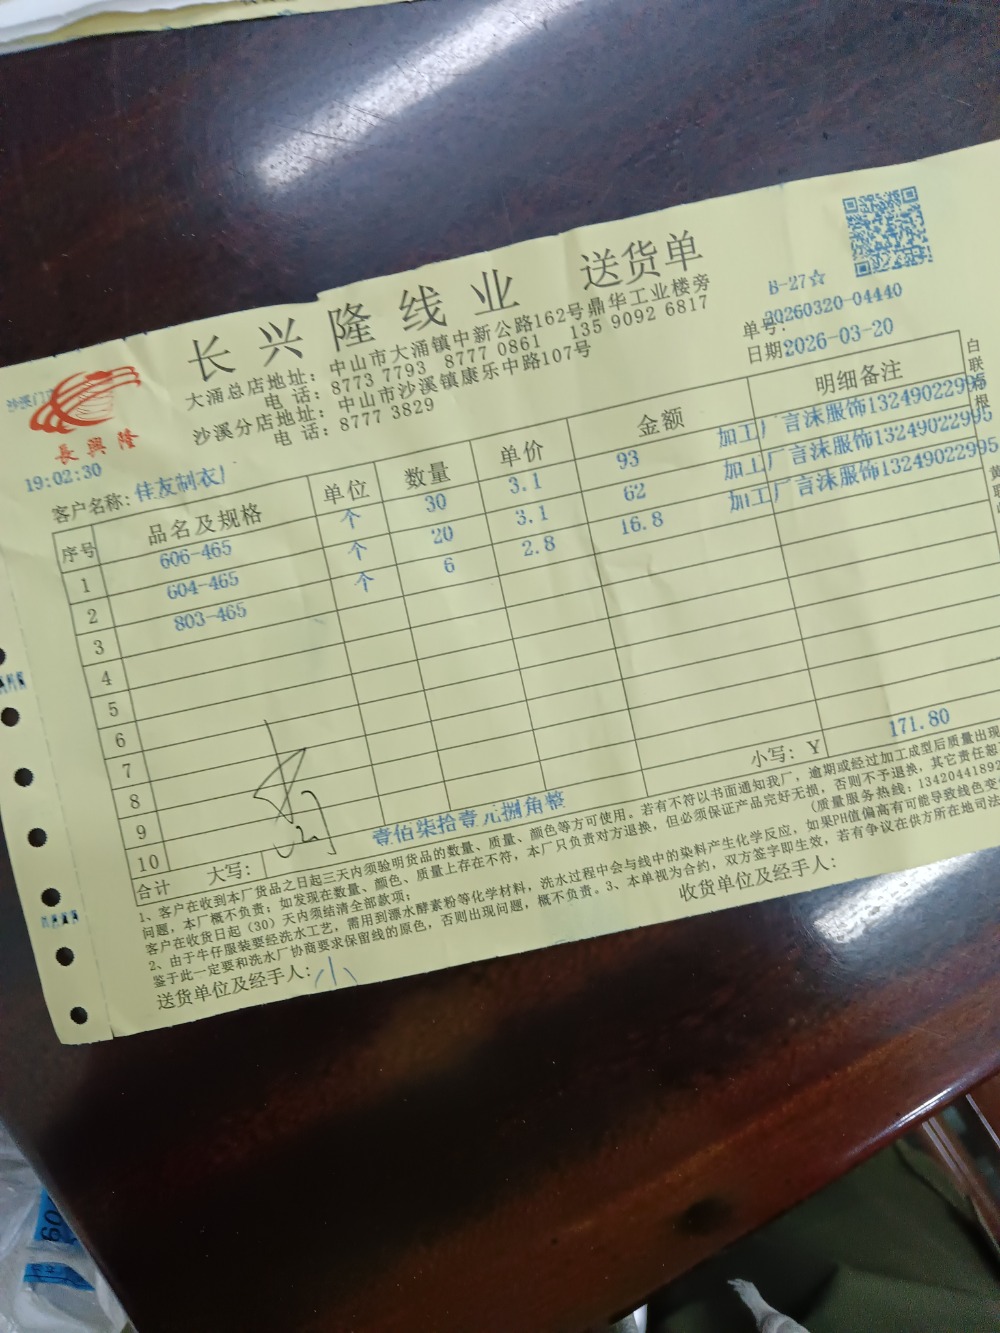 长兴隆线业 送货单
B-27☆
大涌总店地址：中山市大涌镇中新公路162号鼎华工业楼旁
电 话：8773 7793 8777 0861 135 9092 6817
沙溪分店地址：中山市沙溪镇康乐中路107号
电 话：8777 3829
单号：20260320-04440
日期2026-03-20
沙溪门
長興隆
19:02:30
客户名称：佳友制衣厂
序号 品名及规格 单位 数量 单价 金额 明细备注
1 606-465 个 30 3.1 93 加工厂言沫服饰13249022995
2 604-465 个 20 3.1 62 加工厂言沫服饰13249022995
3 803-465 个 6 2.8 16.8 加工厂言沫服饰13249022995
4
5
6
7
8
9
10
合计 大写：壹伯柒拾壹元捌角整 小写：Y 171.80
1、客户在收到本厂货品之日起三天内须验明货品的数量、质量、颜色等方可使用。若有不符以书面通知我厂，逾期或经过加工成型后质量出现
问题，本厂概不负责；如发现在数量、颜色、质量上存在不符，本厂只负责对方退换，但必须保证产品完好无损，否则不予退换，其它责任恕
客户在收货日起（30）天内须结清全部款项； （质量服务热线：1342044189
2、由于牛仔服装要经洗水工艺，需用到漂水酵素粉等化学材料，洗水过程中会与线中的染料产生化学反应，如果PH值偏高有可能导致线色变
鉴于此一定要和洗水厂协商要求保留线的原色，否则出现问题，概不负责。3、本单视为合约，双方签字即生效，若有争议在供方所在地司法
送货单位及经手人：小
收货单位及经手人：
白联
根
黄联